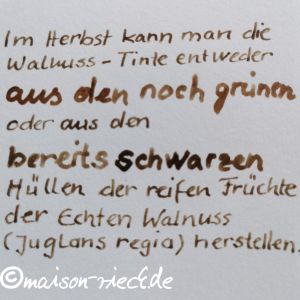 Im Herbst kann man die
Walnuss-Tinte entweder
aus den noch grünen
oder aus den
bereits schwarzen
Hüllen der reifen Früchte
der Echten Walnuss
(Juglans regia) herstellen.
©maison-rieck.de